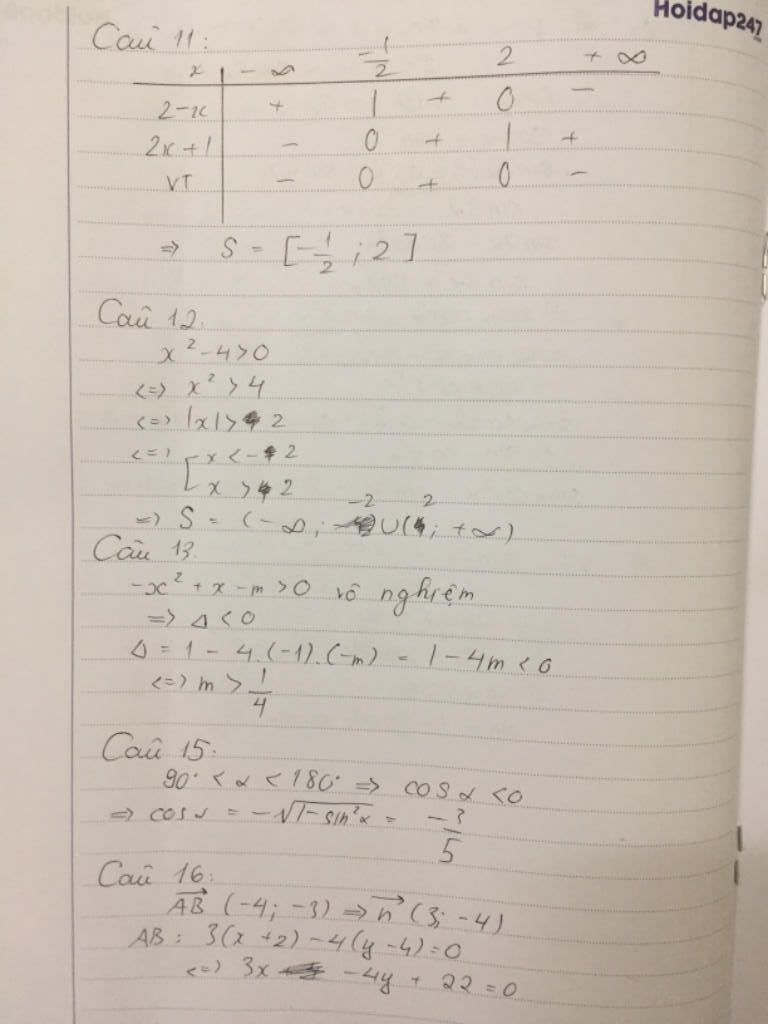 Hoidap247
Câu 11:
x | -∞ -1/2 2 +∞
2-x | + | + 0 -
2x+1 | - 0 + | +
VT | - 0 + 0 -
=> S = [-1/2 ; 2]
Câu 12.
x² - 4 > 0
<=> x² > 4
<=> |x| > 2
<=> [ x < -2
x > 2
=> S = (-∞; -2) ∪ (2; +∞)
Câu 13.
-x² + x - m > 0 vô nghiệm
=> Δ < 0
Δ = 1 - 4.(-1).(-m) = 1 - 4m < 0
<=> m > 1/4
Câu 15:
90° < α < 180° => cos α < 0
=> cos α = -√(1-sin²α) = -3/5
Câu 16:
→AB (-4; -3) => →n (3; -4)
AB: 3(x+2) - 4(y-4) = 0
<=> 3x - 4y + 22 = 0